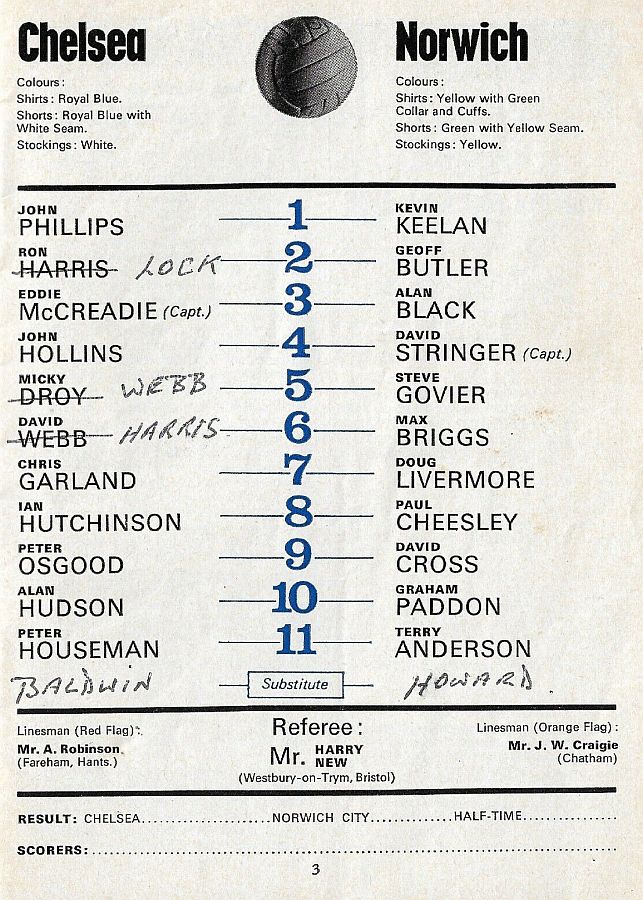 Chelsea Norwich
Colours: Colours:
Shirts: Royal Blue. Shirts: Yellow with Green
Shorts: Royal Blue with Collar and Cuffs.
White Seam. Shorts: Green with Yellow Seam.
Stockings: White. Stockings: Yellow.
JOHN KEVIN
PHILLIPS 1 KEELAN
RON GEOFF
HARRIS LOCK 2 BUTLER
EDDIE ALAN
McCREADIE (Capt.) 3 BLACK
JOHN DAVID
HOLLINS 4 STRINGER (Capt.)
MICKY STEVE
DROY WEBB 5 GOVIER
DAVID MAX
WEBB HARRIS 6 BRIGGS
CHRIS DOUG
GARLAND 7 LIVERMORE
IAN PAUL
HUTCHINSON 8 CHEESLEY
PETER DAVID
OSGOOD 9 CROSS
ALAN GRAHAM
HUDSON 10 PADDON
PETER TERRY
HOUSEMAN 11 ANDERSON
BALDWIN Substitute HOWARD
Linesman (Red Flag): Referee: Linesman (Orange Flag):
Mr. A. Robinson. Mr. HARRY NEW Mr. J. W. Craigie
(Fareham, Hants.) (Westbury-on-Trym, Bristol) (Chatham)
RESULT: CHELSEA......................NORWICH CITY..............HALF-TIME................
SCORERS:..........................................................................................
3